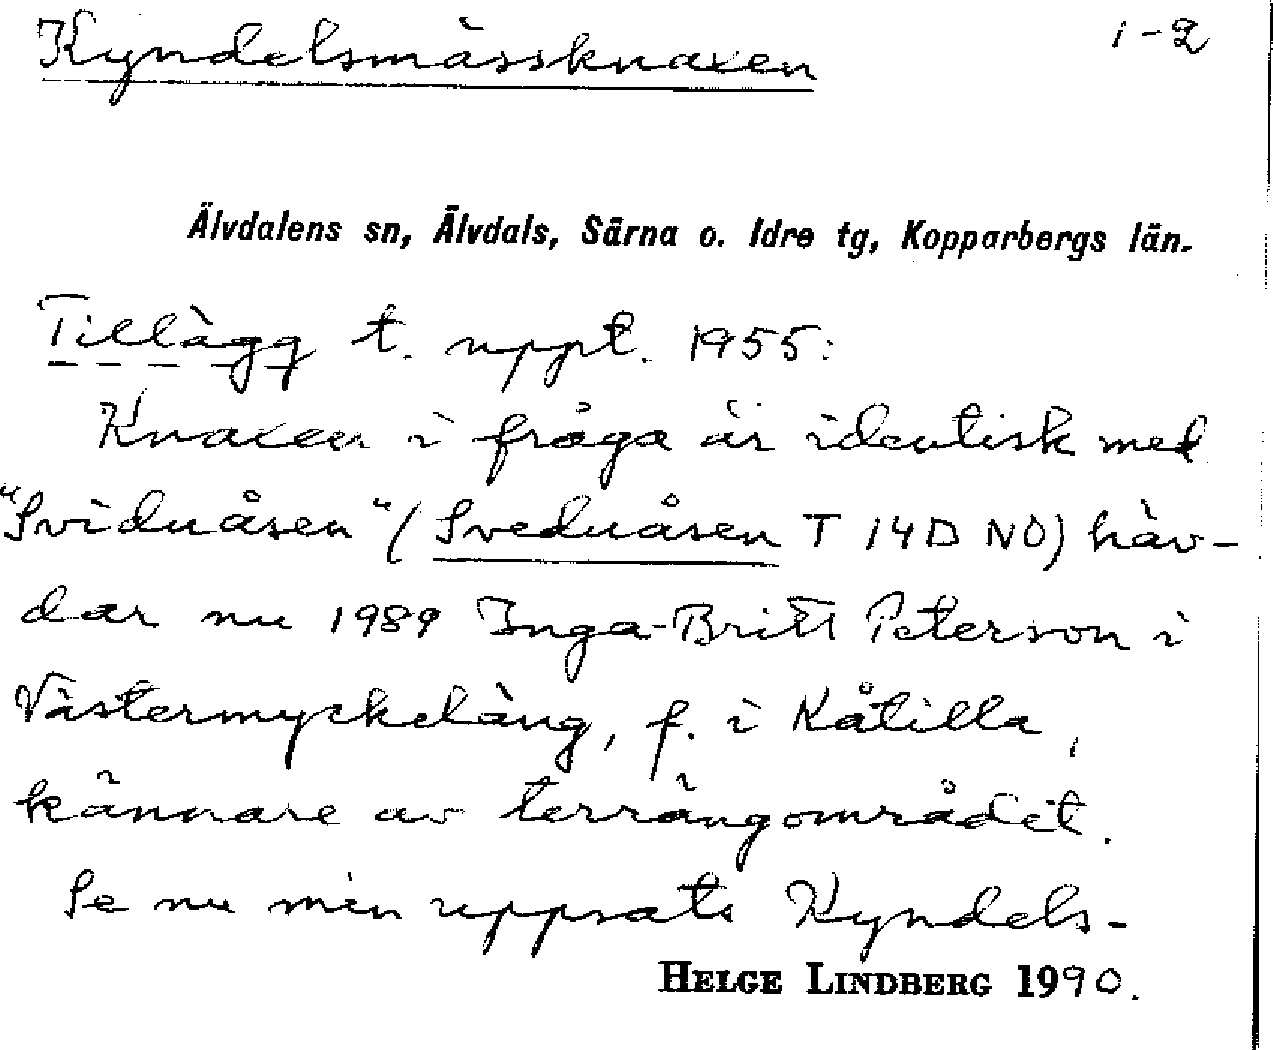 Kyndelsmässknaxen 1-2
Älvdalens sn, Älvdals, Särna o. Idre tg, Kopparbergs län.
Tillägg t. uppt. 1955:
Knaxen i fråga är identisk med
"Sviduåsen" (Sveduåsen T 14D NO) häv-
dar nu 1989 Inga-Britt Peterson i
Västermyckeläng, f. i Kåtilla,
kännare av terrängområdet.
Se nu min uppsats Kyndels-
HELGE LINDBERG 1990.